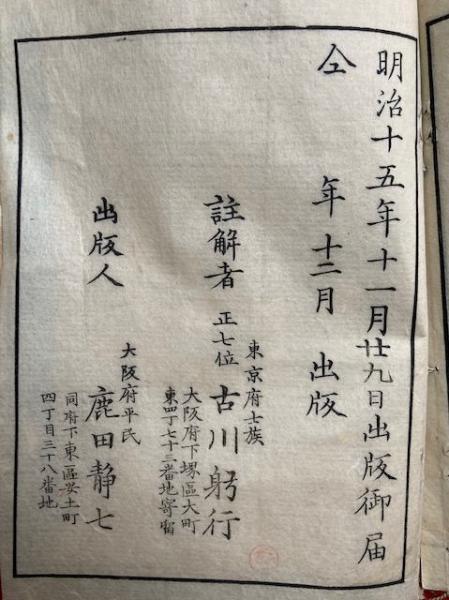 明治十五年十一月廿九日出版御届
仝 年十二月 出版
東京府士族
註解者 正七位 古川躬行
大阪府下堺區大町
東四丁七十三番地寄留
大阪府平民
出版人 鹿田靜七
同府下東區安土町
四丁目三十八番地